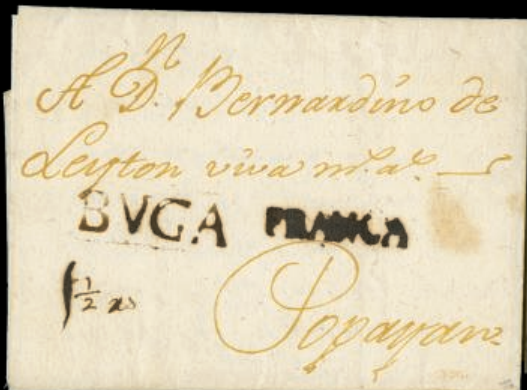 A D.n Bernardino de
Leyton viva m.s a.s
BVGA FRANCA
1/2 rs
Popayan